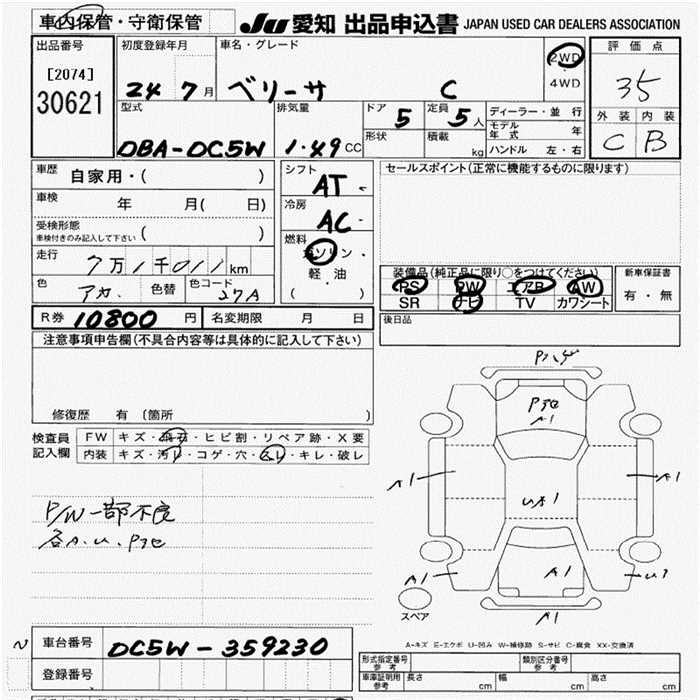 車内保管・守衛保管 JU 愛知 出品申込書 JAPAN USED CAR DEALERS ASSOCIATION
出品番号 初度登録年月 車名・グレード 2WD・4WD 評価点
[2074] 30621 24 7月 ベリーサ C 35
型式 排気量 ドア 5 定員 5人 ディーラー・並行 外装 内装
DBA-DC5W 1.49CC 形状 積載 kg モデル年式 年 C B
ハンドル 左・右
車歴 自家用・( ) シフト AT セールスポイント(正常に機能するものに限ります)
車検 年 月( 日) 冷房 AC
受検形態 車検付きのみ記入して下さい ( )
燃料 ガソリン・軽油 ( )
走行 7万1千011km
色 アカ 色替 色コード 27A
装備品(純正品に限り○をつけてください) 新車保証書
PS PW エアB AW 有・無
SR ナビ TV カワシート
R券 10800円 名変期限 月 日 後日品
注意事項申告欄(不具合内容等は具体的に記入して下さい)
修復歴 有 〔箇所 〕
検査員記入欄 FW キズ・飛石・ヒビ割・リペア跡・X要
内装 キズ・汚レ・コゲ・穴・スレ・キレ・破レ
P/W一部不良
各A.U.Pアセ
Pハゲ
Pアセ
A1
A1
A1
U1
A1
A1
U1
A1
スペア
A-キズ E-エクボ U-凹み W-補修跡 S-サビ C-腐食 XX-交換済
車台番号 DC5W-359230
登録番号
形式指定番号 参考 類別区分番号 参考
車庫証明用 参考 長さ cm 幅 cm 高さ cm